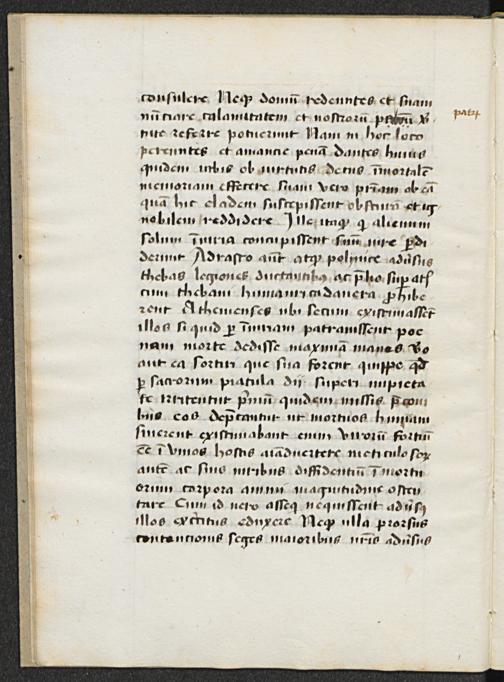 consulere Neqꝫ domū redeuntes et suam
nūtiare calamitatem et nostrorū
tute referre potuerunt Nam in hoc loco
pereuntes et amantie penā dantes huius
quidem urbis ob uirtutis decus īmortalē
memoriam effecere suam vero pr̄iam ob eā
quā hic cladem suscepissent obscurā et ig
nobilem reddidere Ille itaqꝫ qi alienum
solum iniuria concupissent suū iure ꝑdi
derunt Adrasto aūt atqꝫ polinice adūsus
thebas legiones ductantibꝫ ac p̄lio supatꝭ
cum thebani humanri cadauera ꝓhibe
rent Athenienses ubi secum existimassent
illos si quid ꝑ iniuriam patrauissent poe
nam morte dedisse maximā manes vo
aut ea sortiri que sua forent quippe qd̄
ꝑ sacrorum dii superi impieta
te p̄mū quidem missis p̄coni
bus eos dep̄cantur ut mortuos humari
sinerent existimabant enim vivorū fortiū
eē ī viuos hostes aīaduertere meticulosoꝝ
autē ac suis uiribus diffidentiū ī mortu
orum corpora animi magnitudine osten
tare Cum id vero asseqꝫ nequissent adūsꝫ
illos exercitus eduxere Neqꝫ ulla prorsus
contencionis seges maioribus urīs adūsus
patrꝫ